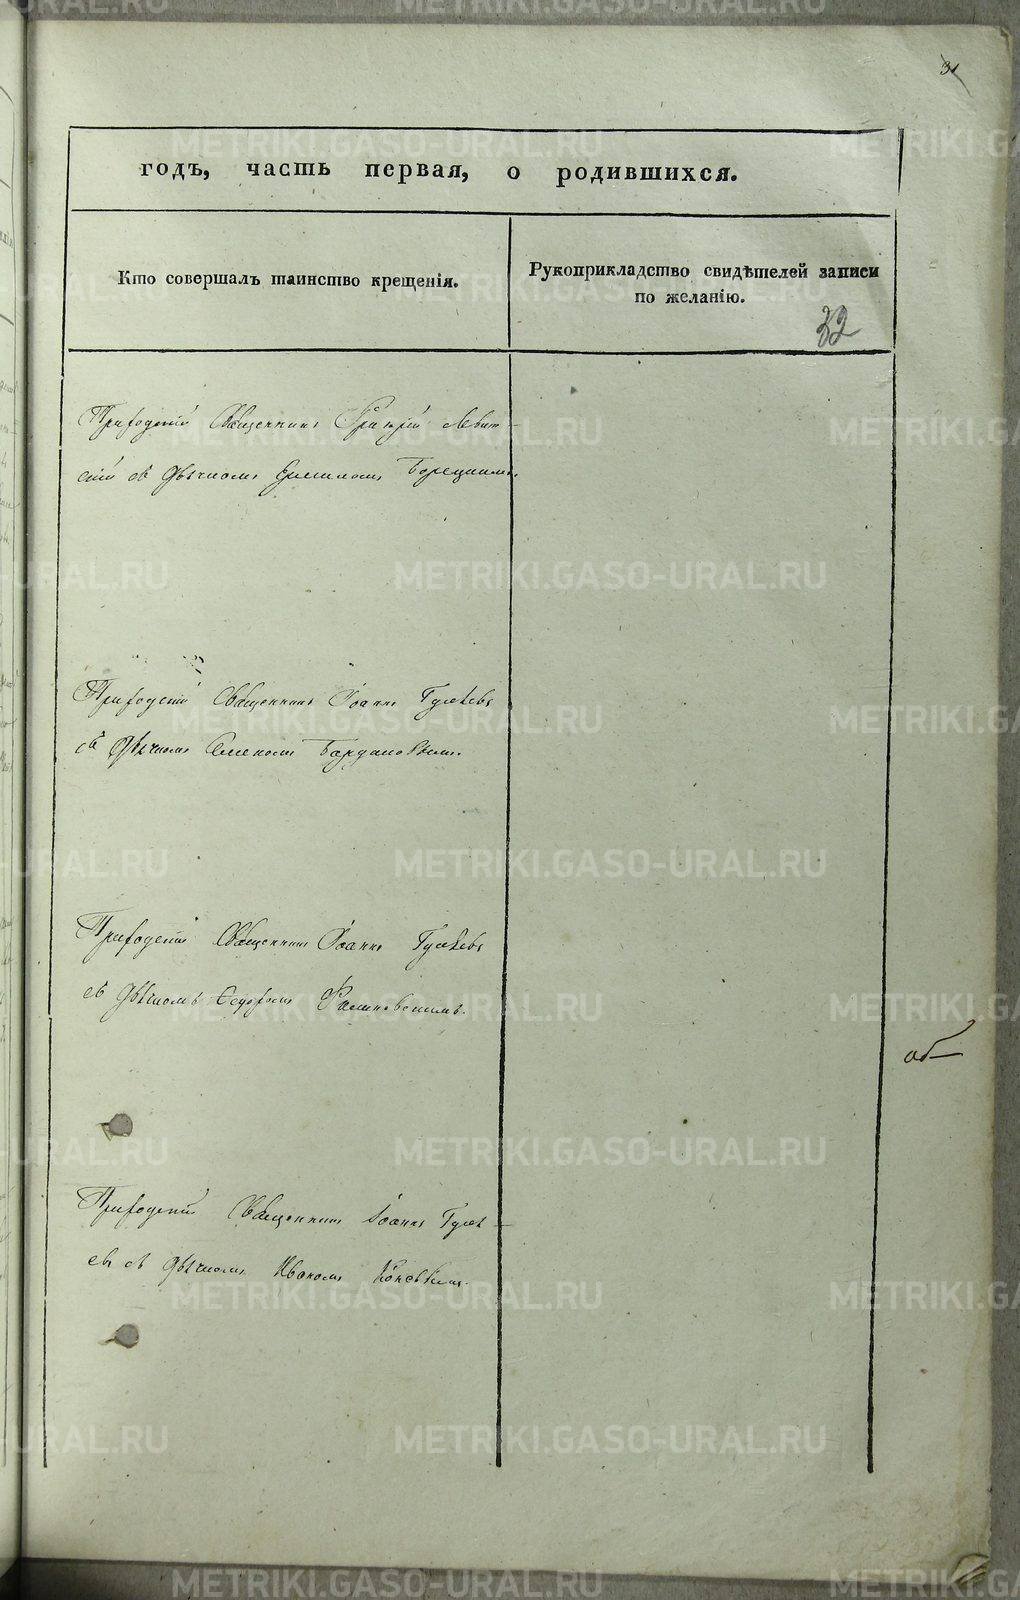 31
годъ, часть первая, о родившихся.
Кто совершалъ таинство крещенія.
Рукоприкладство свидѣтелей записи
по желанію.
32
Приходскій Священникъ Григорій Левит-
скій съ Дьячкомъ Борецкимъ.
Приходскій Священникъ Іоаннъ Гуляевъ
съ Дьячкомъ Семеномъ
Приходскій Священникъ Іоаннъ Гуляевъ
съ Дьячкомъ Ѳедоромъ
об
Приходскій Священникъ Іоаннъ Гуля-
евъ съ Дьячкомъ Иваномъ
METRIKI.GASO-URAL.RU